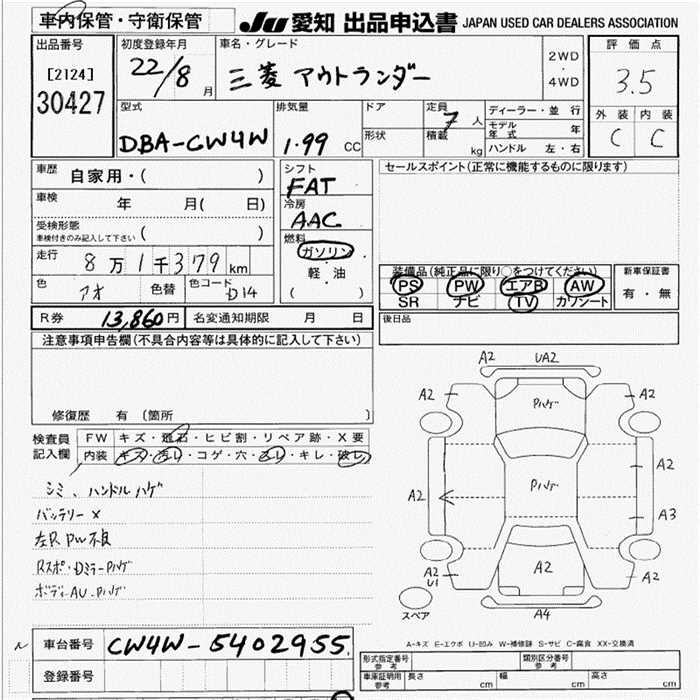 車内保管・守衛保管 JU 愛知 出品申込書 JAPAN USED CAR DEALERS ASSOCIATION
出品番号 [2124] 30427
初度登録年月 22/8 月
車名・グレード 三菱 アウトランダー
2WD・4WD
評価点 3.5
外装 C 内装 C
型式 DBA-CW4W
排気量 1.99 CC
ドア 形状
定員 7 人
積載 kg
ディーラー・並行
モデル年式 年
ハンドル 左・右
車歴 自家用・( )
車検 年 月( 日)
受検形態 ( )
車検付きのみ記入して下さい
走行 8万1千379km
色 アオ 色替 色コード D14
シフト FAT
冷房 AAC
燃料 ガソリン・軽油 ( )
セールスポイント(正常に機能するものに限ります)
装備品(純正品に限り○をつけてください)
PS PW エアB AW
SR ナビ TV カワシート
新車保証書 有・無
R券 13,860円 名変通知期限 月 日
後日品
注意事項申告欄(不具合内容等は具体的に記入して下さい)
修復歴 有 〔箇所 〕
検査員記入欄
FW キズ・飛石・ヒビ割・リペア跡・X要
内装 キズ・汚れ・コゲ・穴・スレ・キレ・破レ
シミ、ハンドルハゲ
バッテリーX
左R PW不良
Rスポ・Dミラー Pハゲ
ボディAU・Pハゲ
A2 UA2
A2 Pハゲ A2
A2 Pハゲ A2
A3
A2 U1 A2 A2
スペア A4
A-キズ E-エクボ U-凹み W-補修跡 S-サビ C-腐食 XX-交換済
車台番号 CW4W-5402955
登録番号
形式指定番号 参考 類別区分番号 参考
車庫証明用 参考 長さ cm 幅 cm 高さ cm